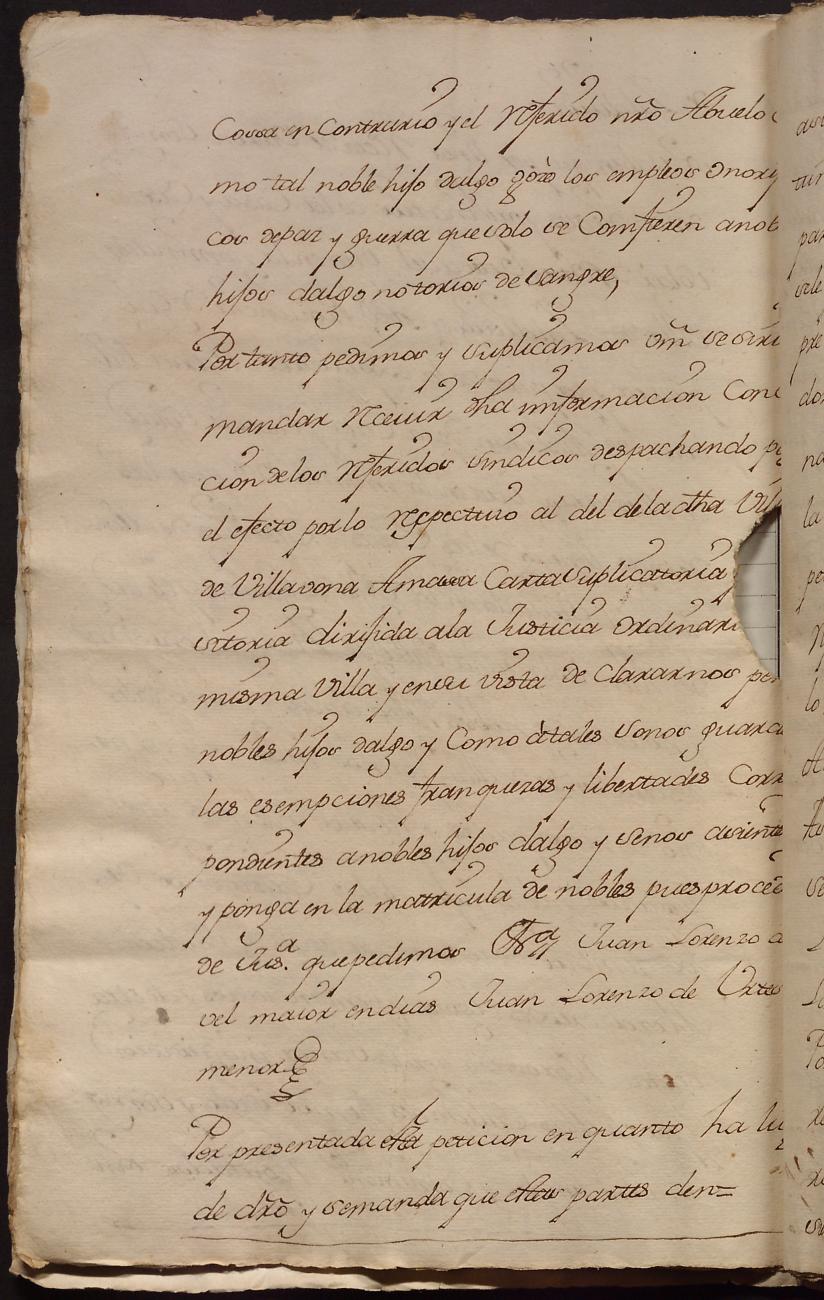 Cossa en Contrario y el Referido nr̃o Abuelo c
mo tal noble hijo dalgo gozo los empleos onori
cos de paz y guerra que solo se Comfieren a nob
hijos dalgo notorios de sangre,
Por tanto pedimos y suplicamos Vm̃ se sirv
mandar Receivir dha imformacion Con
cion de los Referidos sindicos despachando p
el efecto por lo Respectivo al del de la dha Vill
de Villavona Amasa Carta suplicatoria
sitoria dirijida a la Justicia ordinari
misma Villa y en su vista de Clararnos por
nobles hijos dalgo y Como à tales se nos guard
las esempciones franquezas y libertades Corr
pondientes a nobles hijos dalgo y se nos asiente
y ponga en la matricula de nobles pues proced
de Jus.ª que pedimos Juan Lorenzo d
vel maior en dias Juan Lorenzo de Urtes
menor
Por presentada esta peticion en quanto ha lu
de dr̃o y se manda que estas partes den=